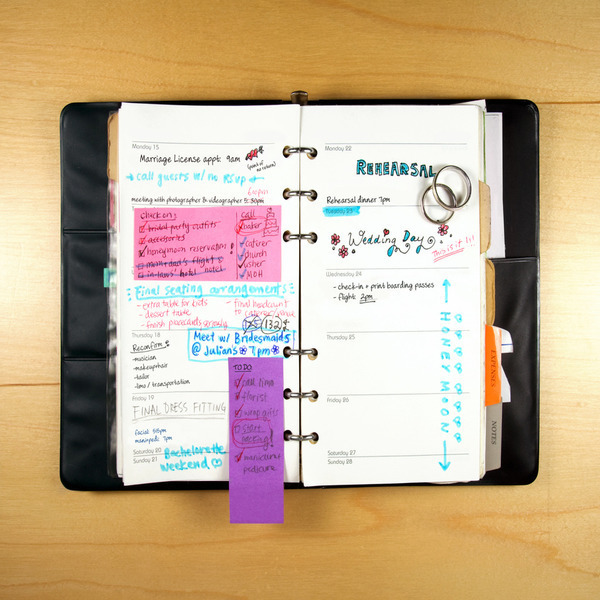 Monday 15
Marriage License appt: 9am
(point of no return)
→ CALL GUESTS W/ NO RSVP →
6:00pm
meeting with photographer & videographer 5:30pm
Check on:
bridal party outfits
accessories
honeymoon reservations!
mom + dad's flight &
in-laws' hotel
call
baker
caterer
church
usher
MOH
Final seating arrangements
- extra table for
- dessert table
- finish placecards
- final headcount
to caterer/venue
125 132
Thursday 18
Meet w/ Bridesmaids
@ Julian's 7pm
Reconfirm
-musician
-makeup/hair
-tailor
-limo / transportation
TO DO
call limo
florist
wrap gifts
start
packing!
manicure
pedicure
Friday 19
FINAL DRESS FITTING
facial:
mani+pedi: 7pm
Saturday 20
Sunday 21
Bachelorette
Weekend
Monday 22
REHEARSAL
Rehearsal dinner 7pm
Tuesday 23
Wedding Day
This is it!!
Wednesday 24
- check-in + print boarding passes
- flight: 2pm
HONEYMOON
Thursday 25
Friday 26
Saturday 27
Sunday 28
EXPENSES
NOTES